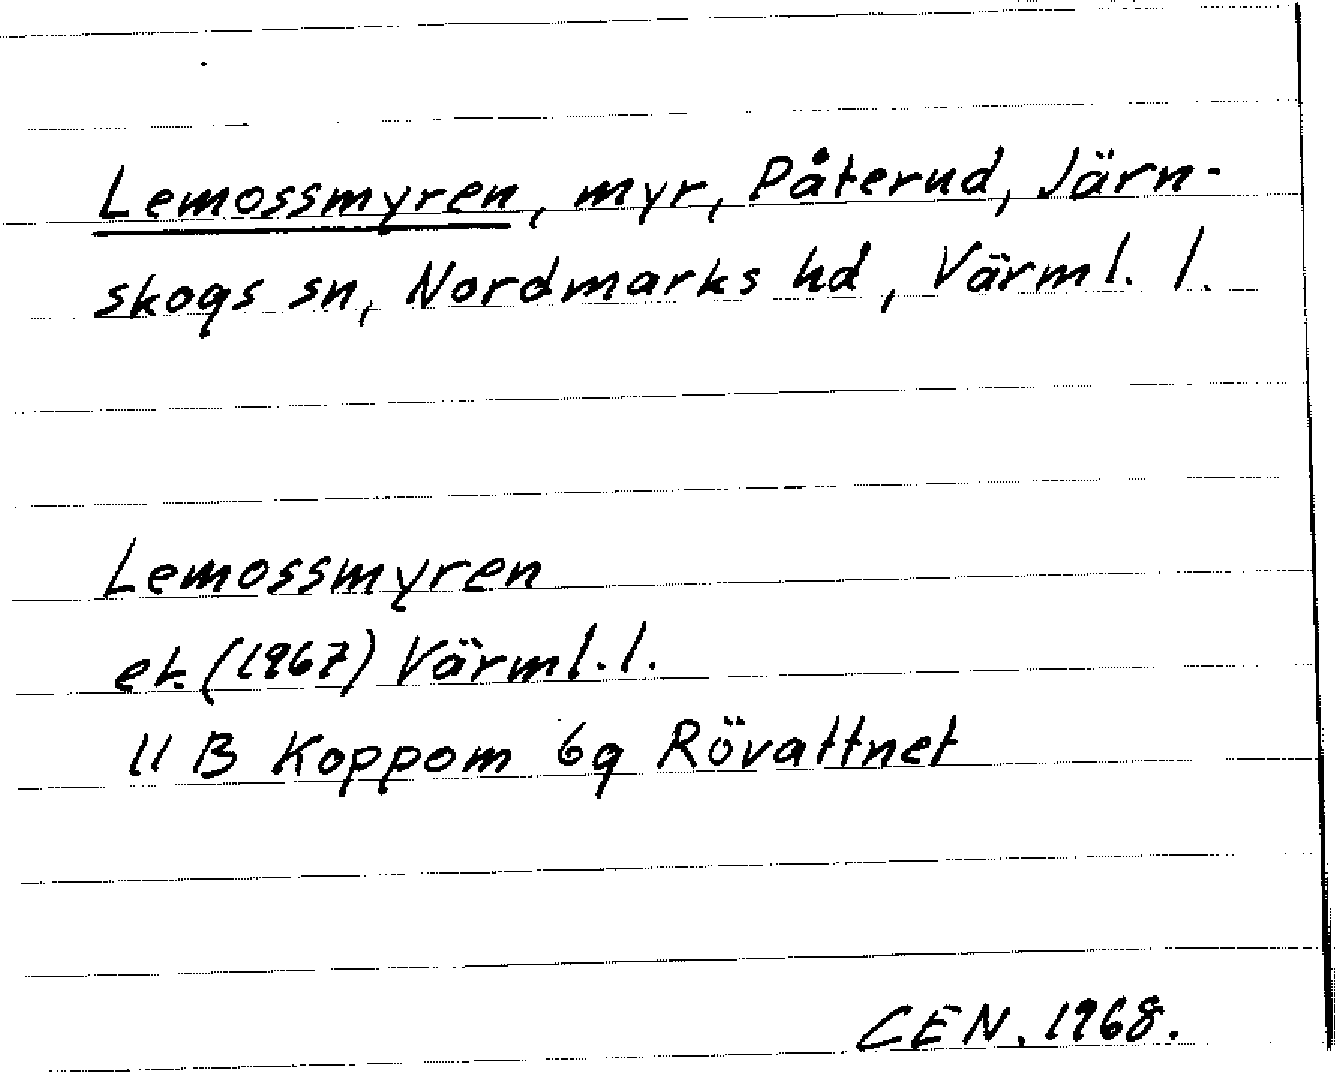 Lemossmyren, myr, Påterud, Järn-
skogs sn, Nordmarks hd, Värml. l.
Lemossmyren
ek. (1967) Värml. l.
11 B Koppom 6g Rövattnet
CEN. 1968.